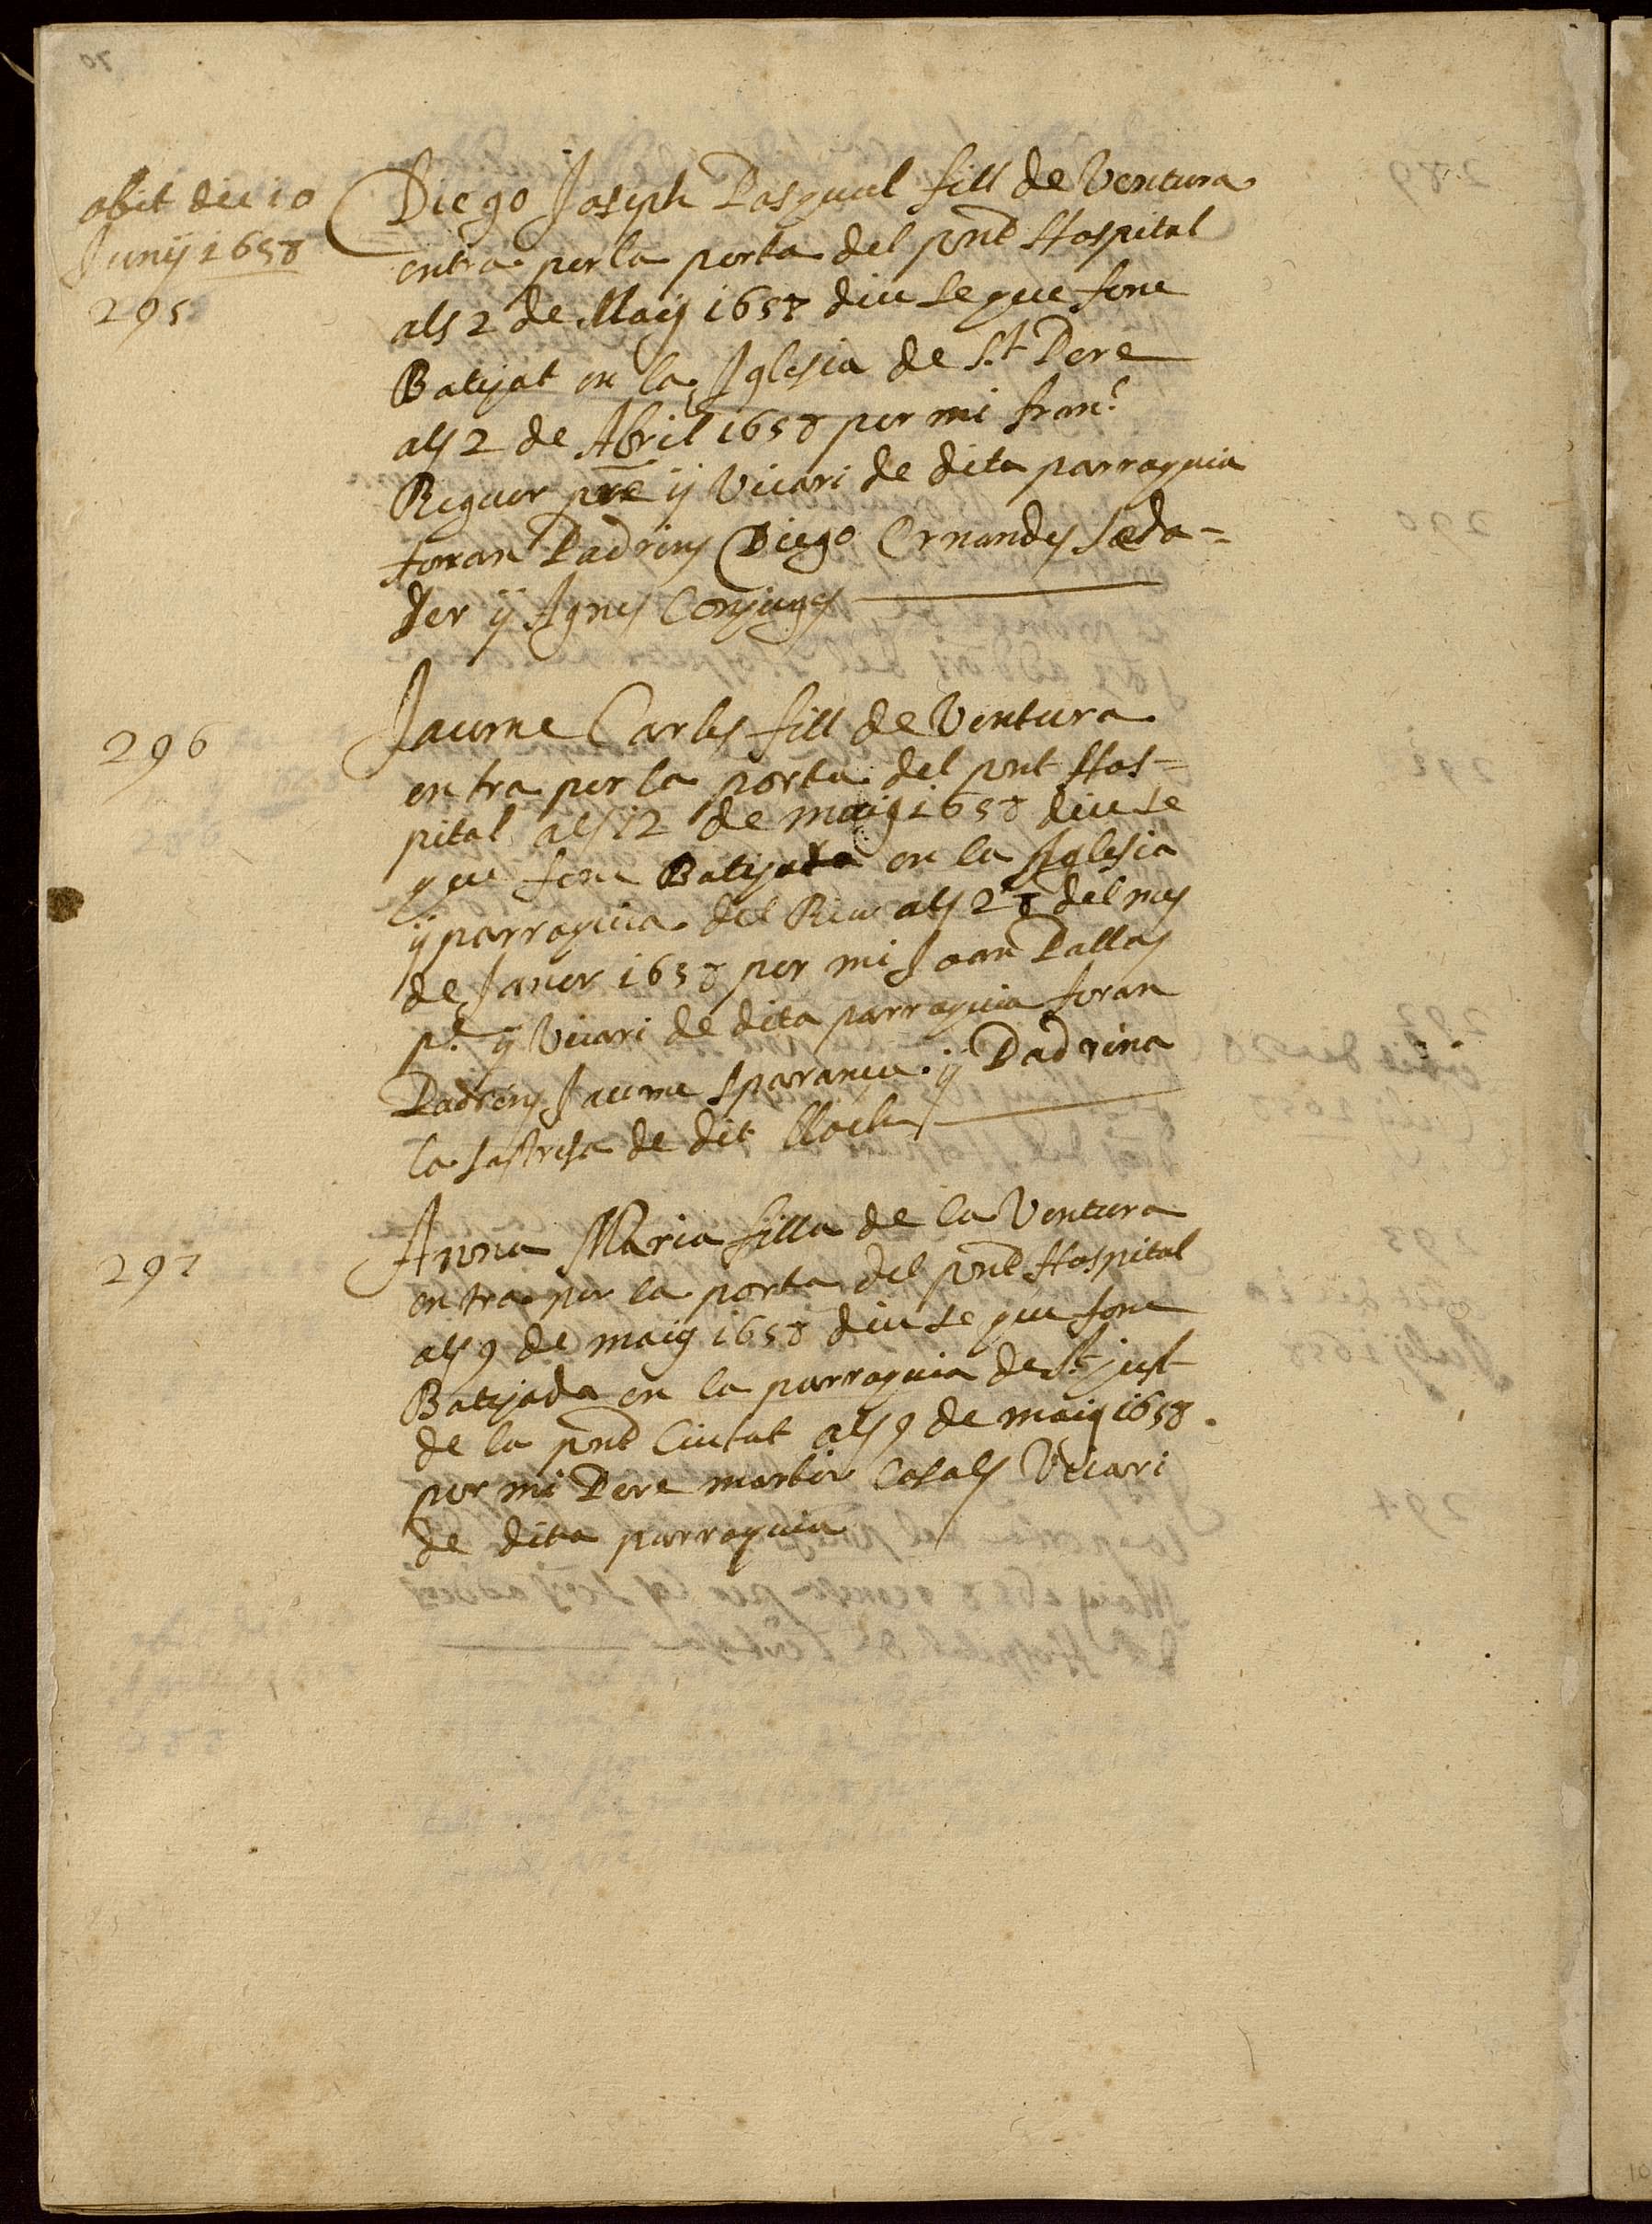 obit die 10
Junij 1658
295
Diego Joseph Pasqual fill de Ventura
entra per la porta del pnt Hospital
als 2 de Maij 1658 diu se que fonc
Batejat en la Iglesia de S.t Pere
als 2 de Abril 1658 per mi fran.c
Reguer pre ij Vicari de dita parraquia
foran Padrins Diego Ernandes seda=
der ij Agnes Conjuges
296
Jaume Carles fill de Ventura
entra per la porta del pnt Hos=
pital als 12 de maig 1658 diu se
que fonc Batejada en la Iglesia
ij parraquia del Riu als 28 del mes
de Janer 1658 per mi Joan Pallas
p.e ij Vicari de dita parraquia foran
Padrins Jaume Sparanca ij Padrina
la sastresa de dit lloch
297
Anna Maria filla de la Ventura
entra per la porta del pnt Hospital
als 9 de maig 1658 diu se que fonc
Batejada en la parraquia de St just
de la pnt Ciutat als 9 de maig 1658.
per mi Pere martir Casals Vicari
de dita parraquia